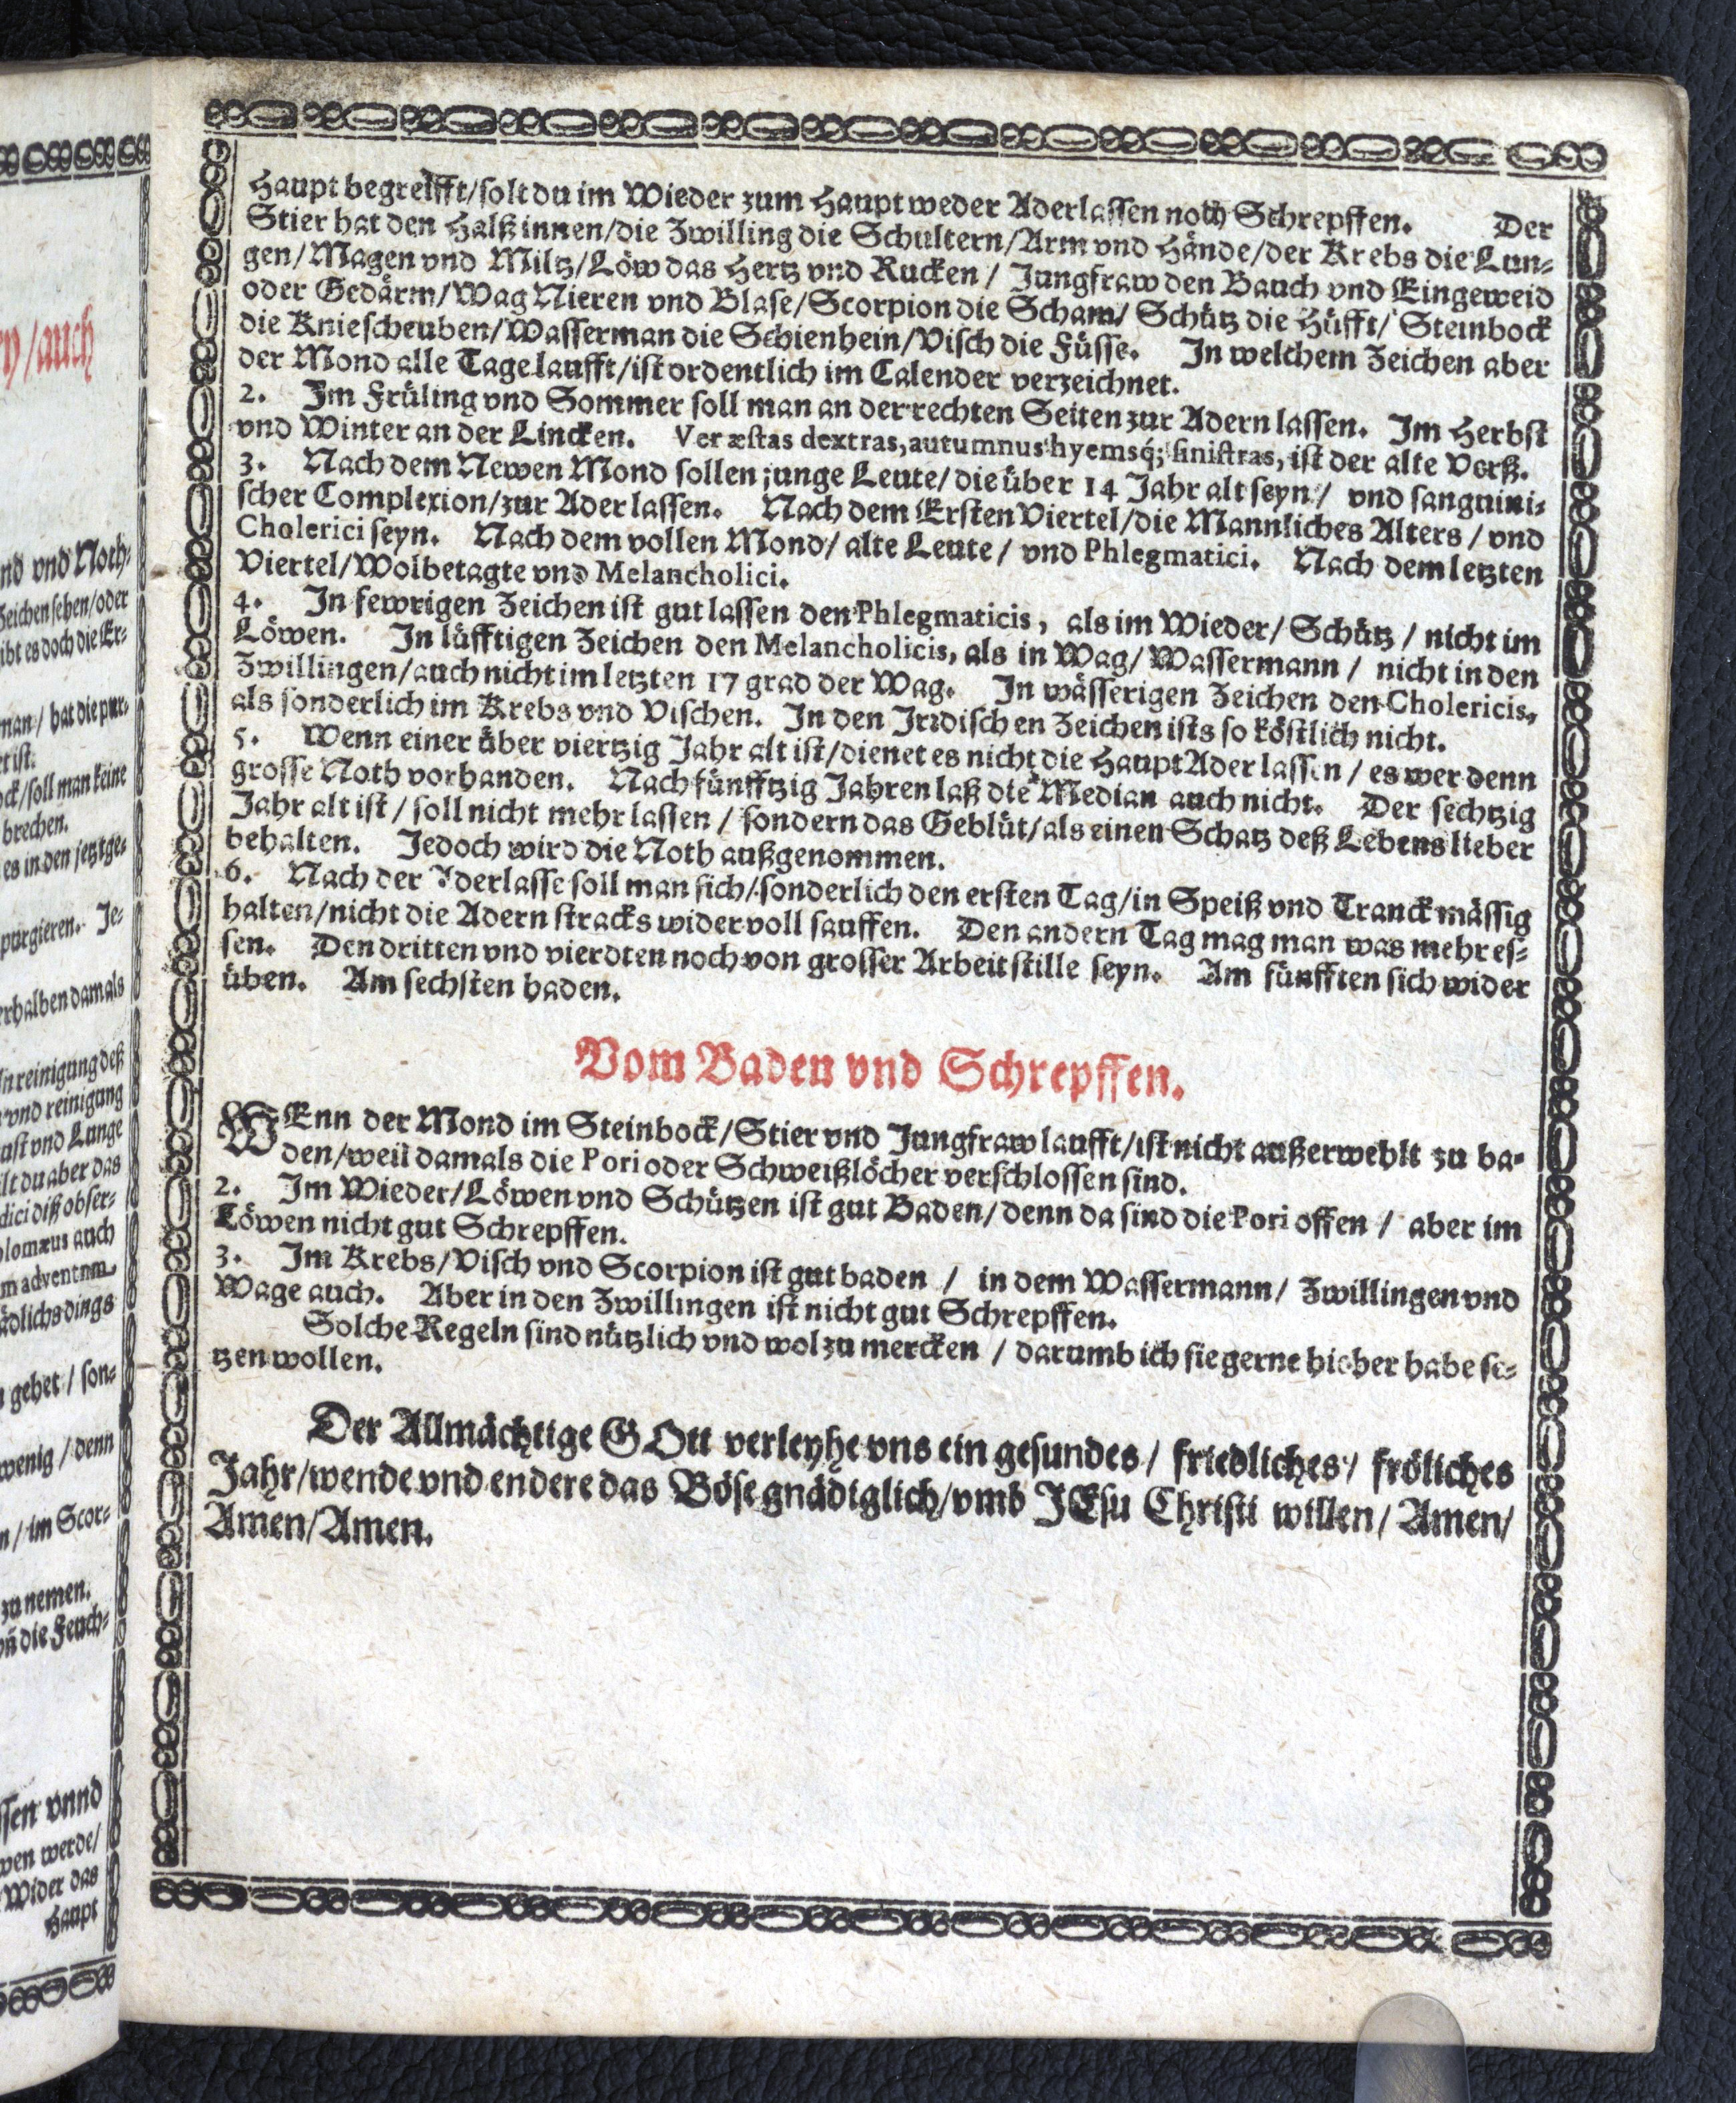 y / auch
nd vnd Noth-
Zeichen sehen / oder
ibt es doch die Er-
man / hat die pur-
et ist.
ock / soll man keine
brechen.
es in den jetztge-
purgieren. Je-
erhalben damals
in reinigung deß
vnd reinigung
ust vnd Lunge
lt du aber das
dici diß obser-
lomæus auch
m adventum
ädlichs dings
n gehet / son-
wenig / denn
n / im Scor-
zu nemen.
vñ die Feuch-
ssen vnnd
wen werde /
Wider das
Haupt
Haupt begreifft / solt du im Wieder zum Haupt weder Aderlassen noch Schrepffen. Der
Stier hat den Halß innen / die Zwilling die Schultern / Arm vnd Hände / der Krebs die Lun-
gen / Magen vnd Miltz / Löw das Hertz vnd Rucken / Jungfraw den Bauch vnd Eingeweid
oder Gedärm / Wag Nieren vnd Blase / Scorpion die Scham / Schütz die Hüfft / Steinbock
die Kniescheuben / Wasserman die Schienbein / Visch die Füsse. In welchem Zeichen aber
der Mond alle Tage laufft / ist ordentlich im Calender verzeichnet.
2. Im Früling vnd Sommer soll man an der rechten Seiten zur Adern lassen. Im Herbst
vnd Winter an der Lincken. Ver æstas dextras, autumnus hyemsq́; sinistras, ist der alte Verß.
3. Nach dem Newen Mond sollen junge Leute / die über 14 Jahr alt seyn / vnd sanguini-
scher Complexion / zur Ader lassen. Nach dem Ersten Viertel / die Mannliches Alters / vnd
Cholerici seyn. Nach dem vollen Mond / alte Leute / vnd Phlegmatici. Nach dem letzten
Viertel / Wolbetagte vnd Melancholici.
4. In fewrigen Zeichen ist gut lassen den Phlegmaticis, als im Wieder / Schütz / nicht im
Löwen. In lüfftigen Zeichen den Melancholicis, als in Wag / Wassermann / nicht in den
Zwillingen / auch nicht im letzten 17 grad der Wag. In wässerigen Zeichen den Cholericis,
als sonderlich im Krebs vnd Vischen. In den Irrdischen Zeichen ists so köstlich nicht.
5. Wenn einer über viertzig Jahr alt ist / dienet es nicht die Haupt Ader lassen / es wer denn
grosse Noth vorhanden. Nach fünfftzig Jahren laß die Median auch nicht. Der sechtzig
Jahr alt ist / soll nicht mehr lassen / sondern das Geblüt / als einen Schatz deß Lebens lieber
behalten. Jedoch wird die Noth außgenommen.
6. Nach der Aderlasse soll man sich / sonderlich den ersten Tag / in Speiß vnd Tranck mässig
halten / nicht die Adern stracks wider voll sauffen. Den andern Tag mag man was mehr es-
sen. Den dritten vnd vierdten noch von grosser Arbeit stille seyn. Am fünfften sich wider
üben. Am sechsten baden.
Vom Baden vnd Schrepffen.
WEnn der Mond im Steinbock / Stier vnd Jungfraw laufft / ist nicht außerwehlt zu ba-
den / weil damals die Pori oder Schweißlöcher verschlossen sind.
2. Im Wieder / Löwen vnd Schützen ist gut Baden / denn da sind die Pori offen / aber im
Löwen nicht gut Schrepffen.
3. Im Krebs / Visch vnd Scorpion ist gut baden / in dem Wassermann / Zwillingen vnd
Wage auch. Aber in den Zwillingen ist nicht gut Schrepffen.
Solche Regeln sind nützlich vnd wol zu mercken / darumb ich sie gerne hieher habe se-
tzen wollen.
Der Allmächtige GOtt verleyhe vns ein gesundes / friedliches / fröliches
Jahr / wende vnd endere das Böse gnädiglich / vmb JEsu Christi willen / Amen /
Amen / Amen.